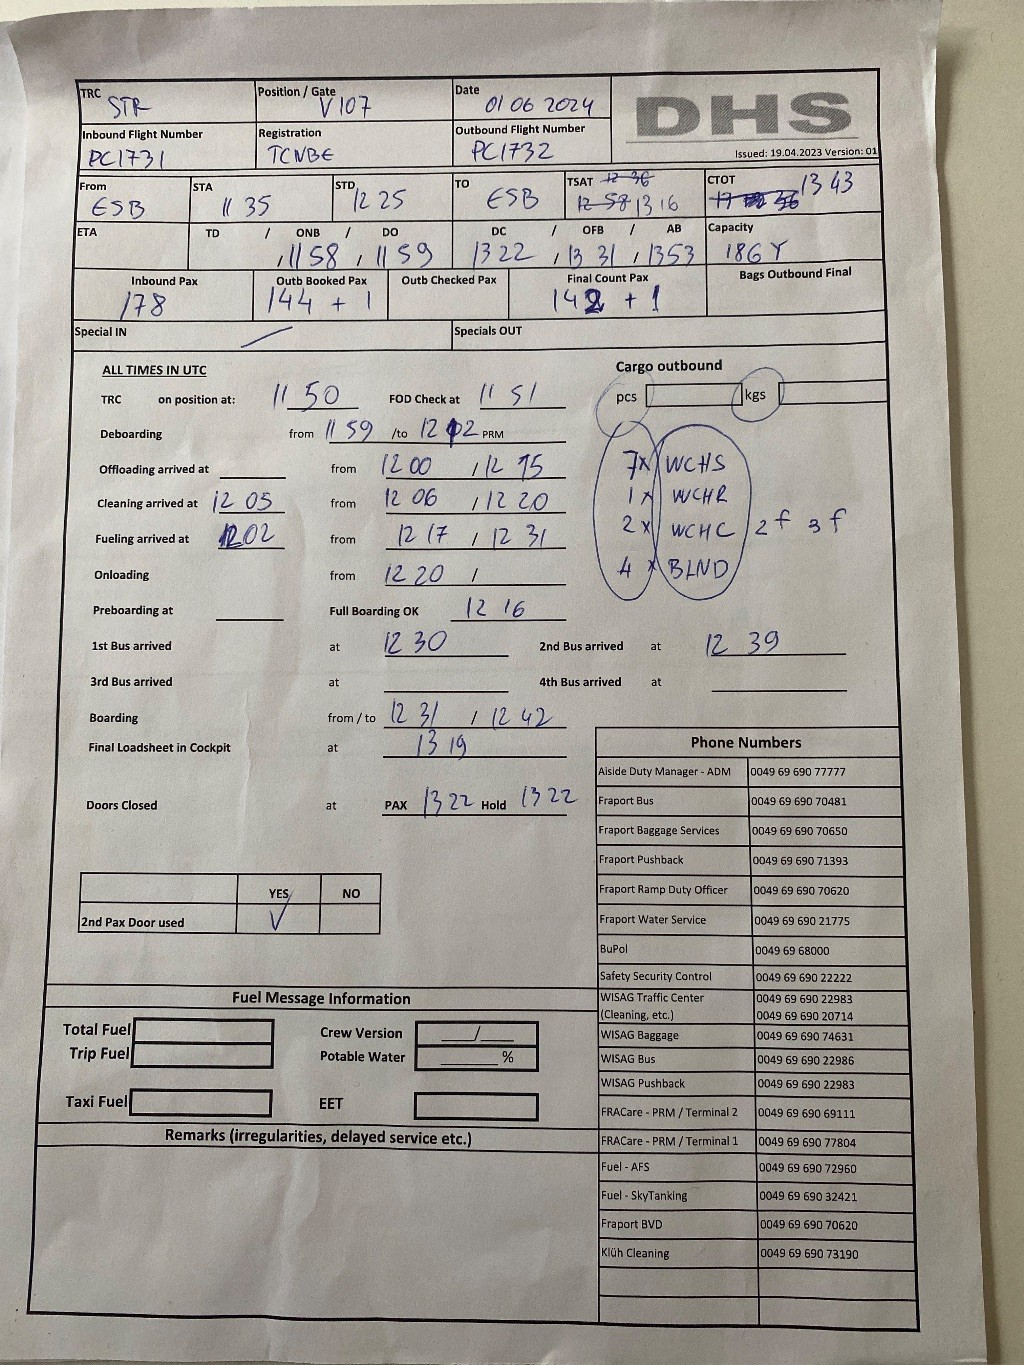 TRC STR Position / Gate V107 Date 01 06 2024 DHS
Inbound Flight Number PC1731 Registration TCNBE Outbound Flight Number PC1732 Issued: 19.04.2023 Version: 01
From ESB STA 11 35 STD 12 25 TO ESB TSAT 12 36 12 58 13 16 CTOT 13 43
ETA TD / ONB / DO , 11 58 , 11 59 DC / OFB / AB 13 22 , 13 31 , 1353 Capacity 186 Y
Inbound Pax 178 Outb Booked Pax 144 + 1 Outb Checked Pax Final Count Pax 142 + 1 Bags Outbound Final
Special IN Specials OUT
ALL TIMES IN UTC Cargo outbound
TRC on position at: 11 50 FOD Check at 11 51 pcs kgs
Deboarding from 11 59 /to 12 12 PRM
Offloading arrived at from 12 00 , 12 15 7x WCHS
Cleaning arrived at 12 05 from 12 06 , 12 20 1x WCHR
Fueling arrived at 1202 from 12 17 , 12 31 2x WCHC 2f 3f
Onloading from 12 20 / 4x BLND
Preboarding at Full Boarding OK 12 16
1st Bus arrived at 12 30 2nd Bus arrived at 12 39
3rd Bus arrived at 4th Bus arrived at
Boarding from / to 12 31 / 12 42
Final Loadsheet in Cockpit at 13 19
Doors Closed at PAX 13 22 Hold 13 22
YES NO
2nd Pax Door used V
Phone Numbers
Aiside Duty Manager - ADM 0049 69 690 77777
Fraport Bus 0049 69 690 70481
Fraport Baggage Services 0049 69 690 70650
Fraport Pushback 0049 69 690 71393
Fraport Ramp Duty Officer 0049 69 690 70620
Fraport Water Service 0049 69 690 21775
BuPol 0049 69 68000
Safety Security Control 0049 69 690 22222
WISAG Traffic Center 0049 69 690 22983
(Cleaning, etc.) 0049 69 690 20714
WISAG Baggage 0049 69 690 74631
WISAG Bus 0049 69 690 22986
WISAG Pushback 0049 69 690 22983
FRACare - PRM / Terminal 2 0049 69 690 69111
FRACare - PRM / Terminal 1 0049 69 690 77804
Fuel - AFS 0049 69 690 72960
Fuel - SkyTanking 0049 69 690 32421
Fraport BVD 0049 69 690 70620
Klüh Cleaning 0049 69 690 73190
Fuel Message Information
Total Fuel Crew Version /
Trip Fuel Potable Water %
Taxi Fuel EET
Remarks (irregularities, delayed service etc.)